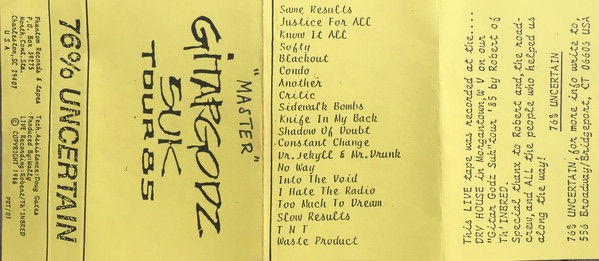 Phantom Records & tapes
P.O. Box 39275
North Cont. Sta.
Charleston, SC 29407
U S A
Tech.Assistence:Doug Gates
Produced by:Wally
LIVE Recording:Robert/Th'INBRED
© COPYRIGHT 1986
PRT/01
76% UNCERTAIN
"MASTER"
GITARGODZ
SUK
TOUR 85
Same Results
Justice For All
Know It All
Softy
Blackout
Condo
Another
Critic
Sidewalk Bombs
Knife In My Back
Shadow Of Doubt
Constant Change
Dr.Jekyll & Mr.Drunk
No Way
Into The Void
I Hate The Radio
Too Much To Dream
Slow Results
T N T
Waste Product
This LIVE tape was recorded at the....
DRY HOUSE in Morgantown,W V on our
"Gitar Godz Suk"tour '85 by Robert of
Th'INBRED.
Special thanx to Robert and,the road-
crew,and ALL the people who helped us
along the way!
76% UNCERTAIN
76% UNCERTAIN,for more info write to,
556 Broadway/Bridgeport, CT 06605 USA